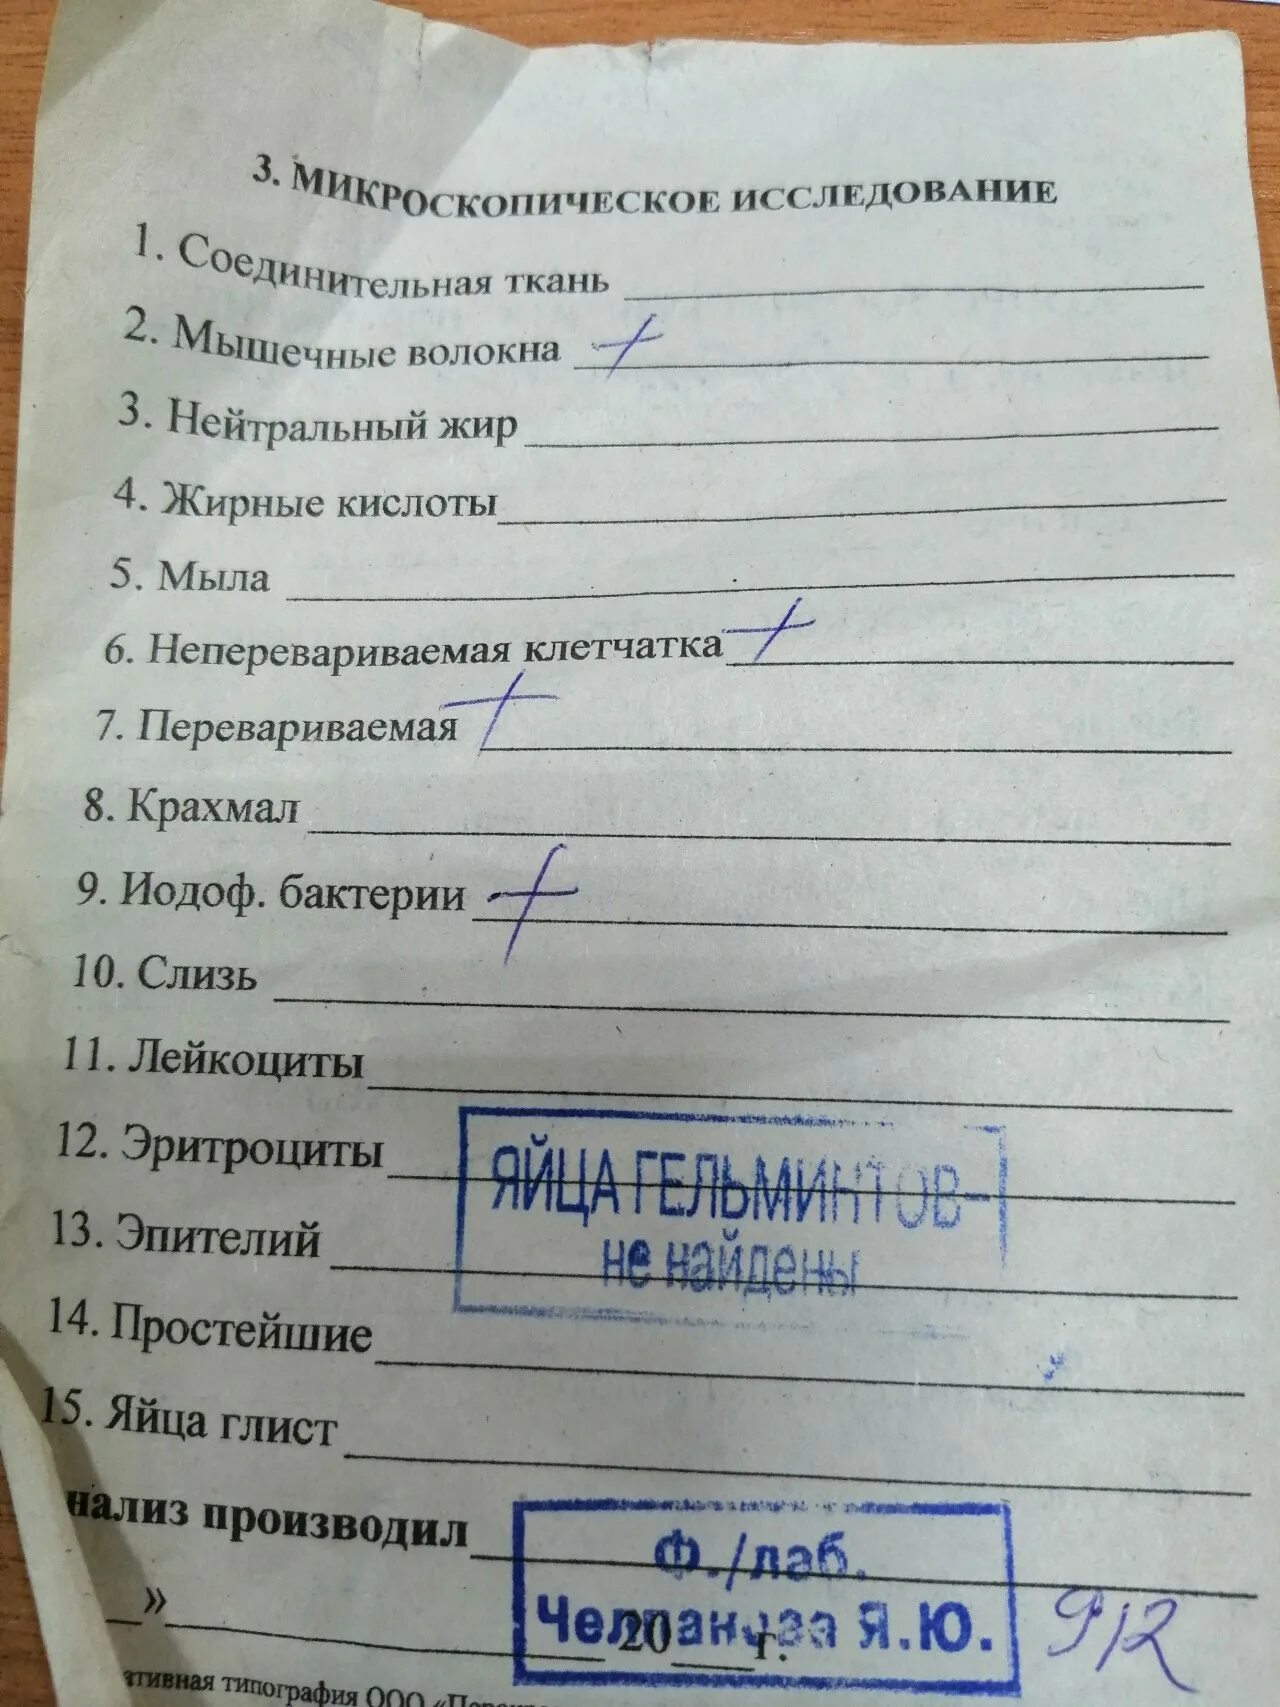 3. МИКРОСКОПИЧЕСКОЕ ИССЛЕДОВАНИЕ
1. Соединительная ткань
2. Мышечные волокна +
3. Нейтральный жир
4. Жирные кислоты
5. Мыла
6. Неперевариваемая клетчатка +
7. Перевариваемая +
8. Крахмал
9. Иодоф. бактерии +
10. Слизь
11. Лейкоциты
12. Эритроциты
ЯЙЦА ГЕЛЬМИНТОВ-
не найдены
13. Эпителий
14. Простейшие
15. Яйца глист
нализ производил
Ф./лаб.
Я.Ю.
» 20 г.
ативная типография ООО